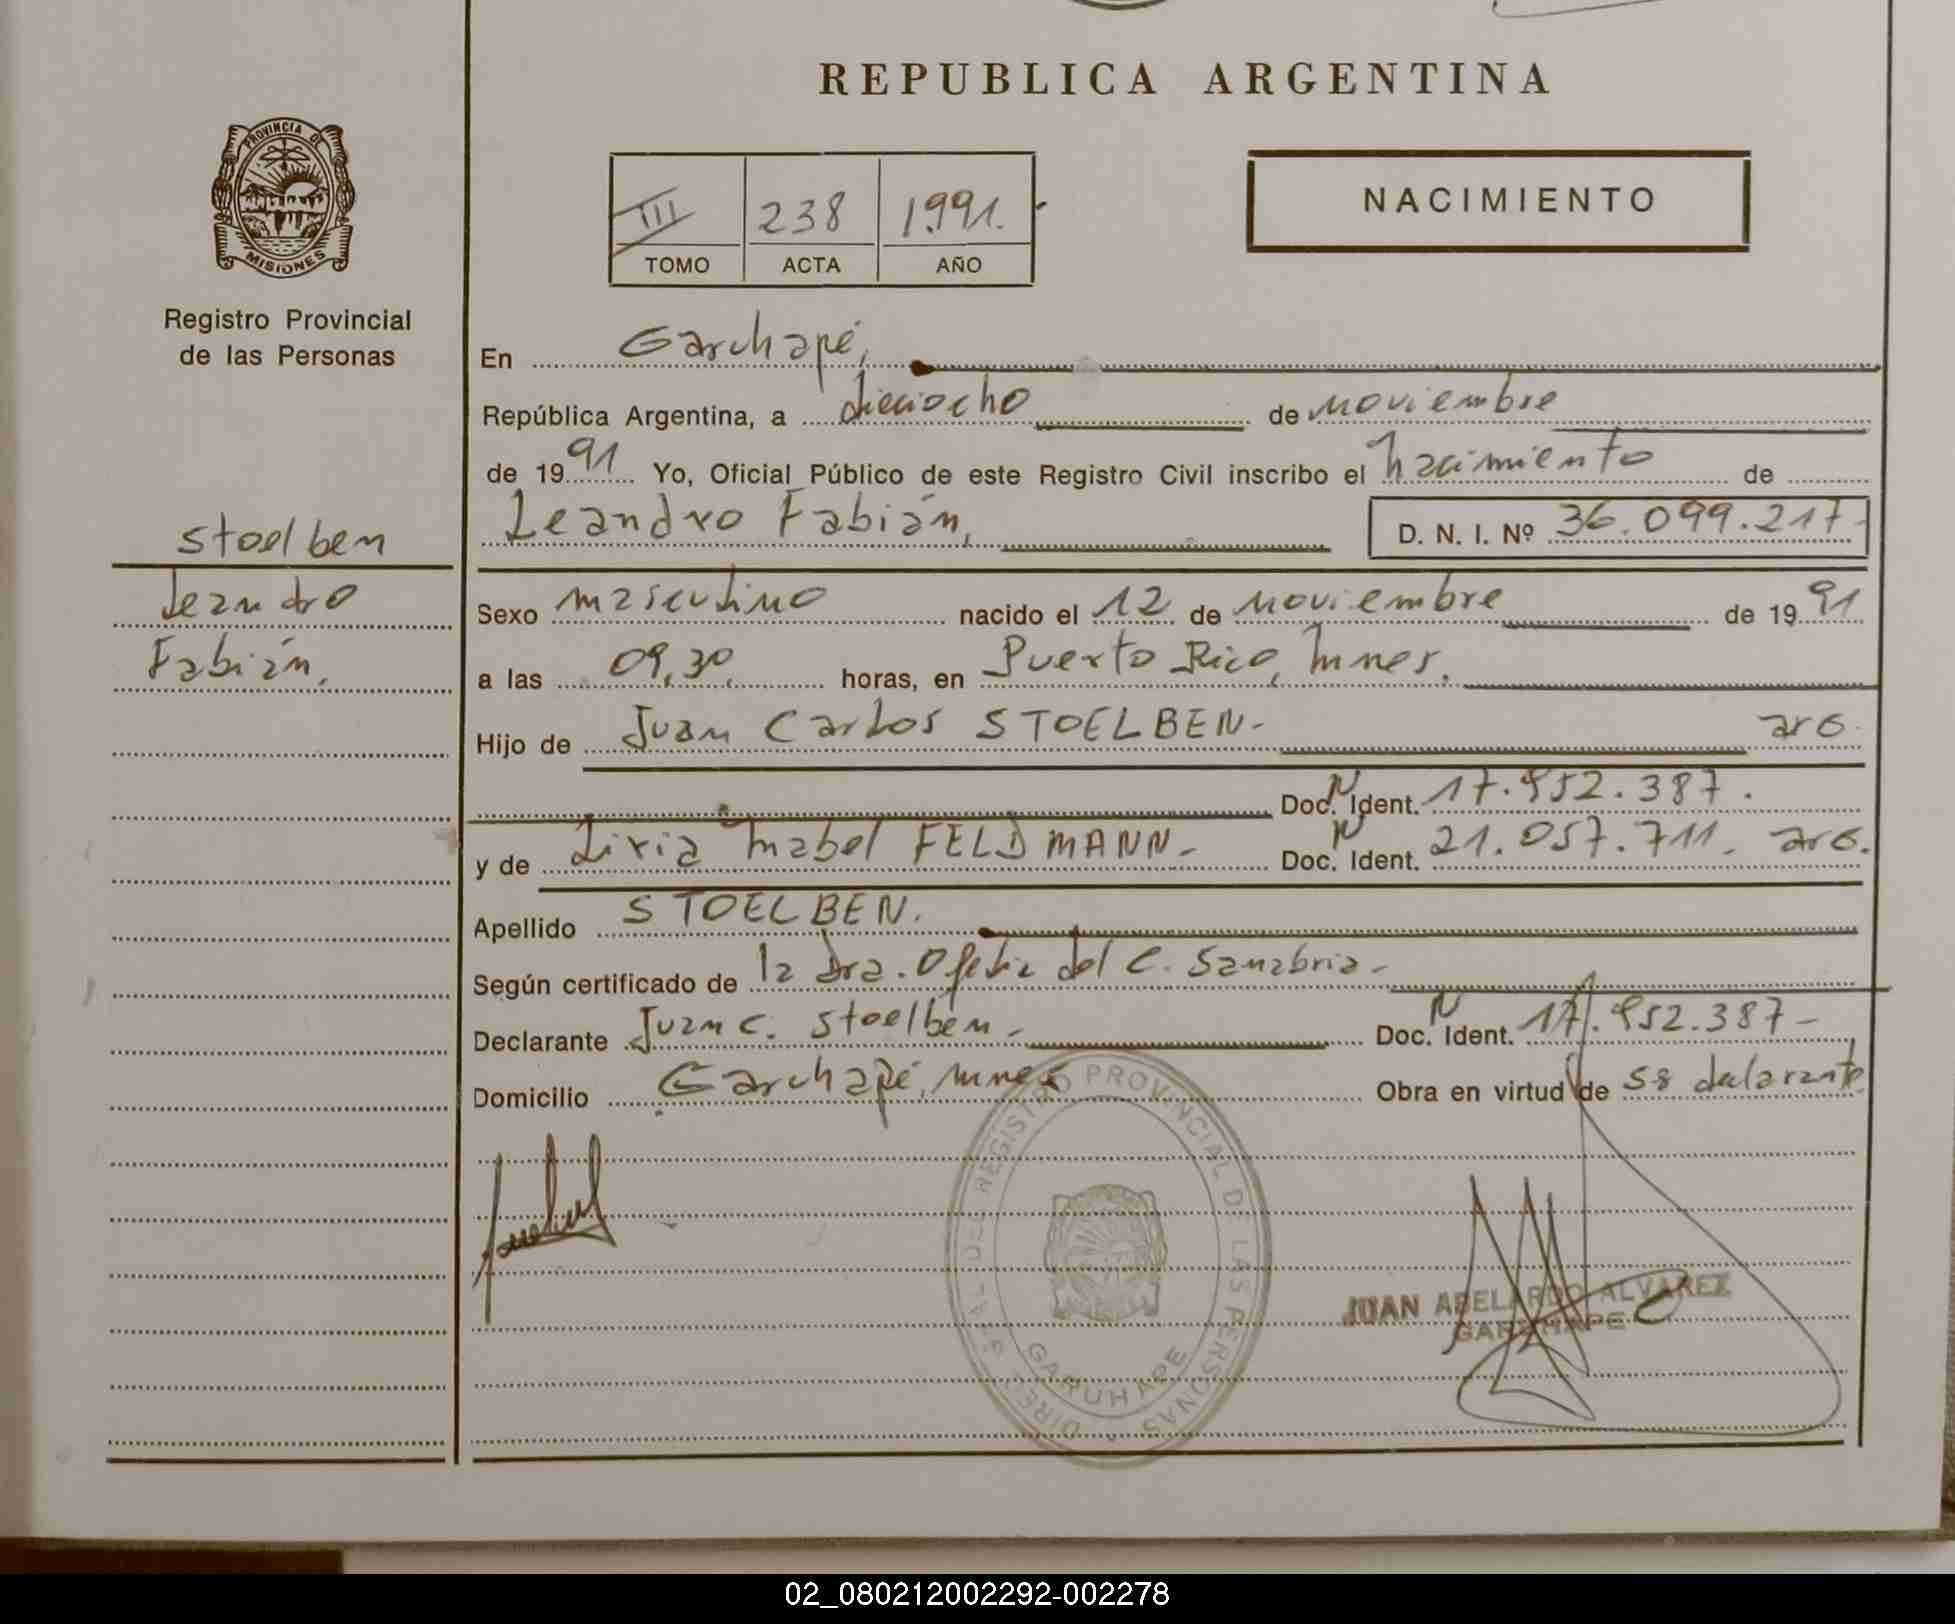 REPUBLICA ARGENTINA
PROVINCIA DE
MISIONES
Registro Provincial
de las Personas
III 238 1991.
TOMO ACTA AÑO
NACIMIENTO
En Garuhapé,
República Argentina, a dieciocho de noviembre
de 1991 Yo, Oficial Público de este Registro Civil inscribo el nacimiento de
Leandro Fabián, D. N. I. Nº 36.099.217-
Stoelben
Leandro
Fabián.
Sexo masculino nacido el 12 de noviembre de 1991
a las 09,30, horas, en Puerto Rico, Mnes.
Hijo de Juan Carlos STOELBEN- arg.
Doc. Ident. N 17.952.387.
y de Liria Mabel FELDMANN- Doc. Ident. N 21.057.711. arg.
Apellido STOELBEN.
Según certificado de la Dra. Ofelia del C. Sanabria-
Declarante Juan C. Stoelben- Doc. Ident. N 17.952.387-
Domicilio Garuhapé, Mnes Obra en virtud de ss declarante
REGISTRO PROVINCIAL DE LAS PERSONAS
GARUHAPE
JUAN ABELARDO ALVAREZ
GARUHAPE
02_080212002292-002278